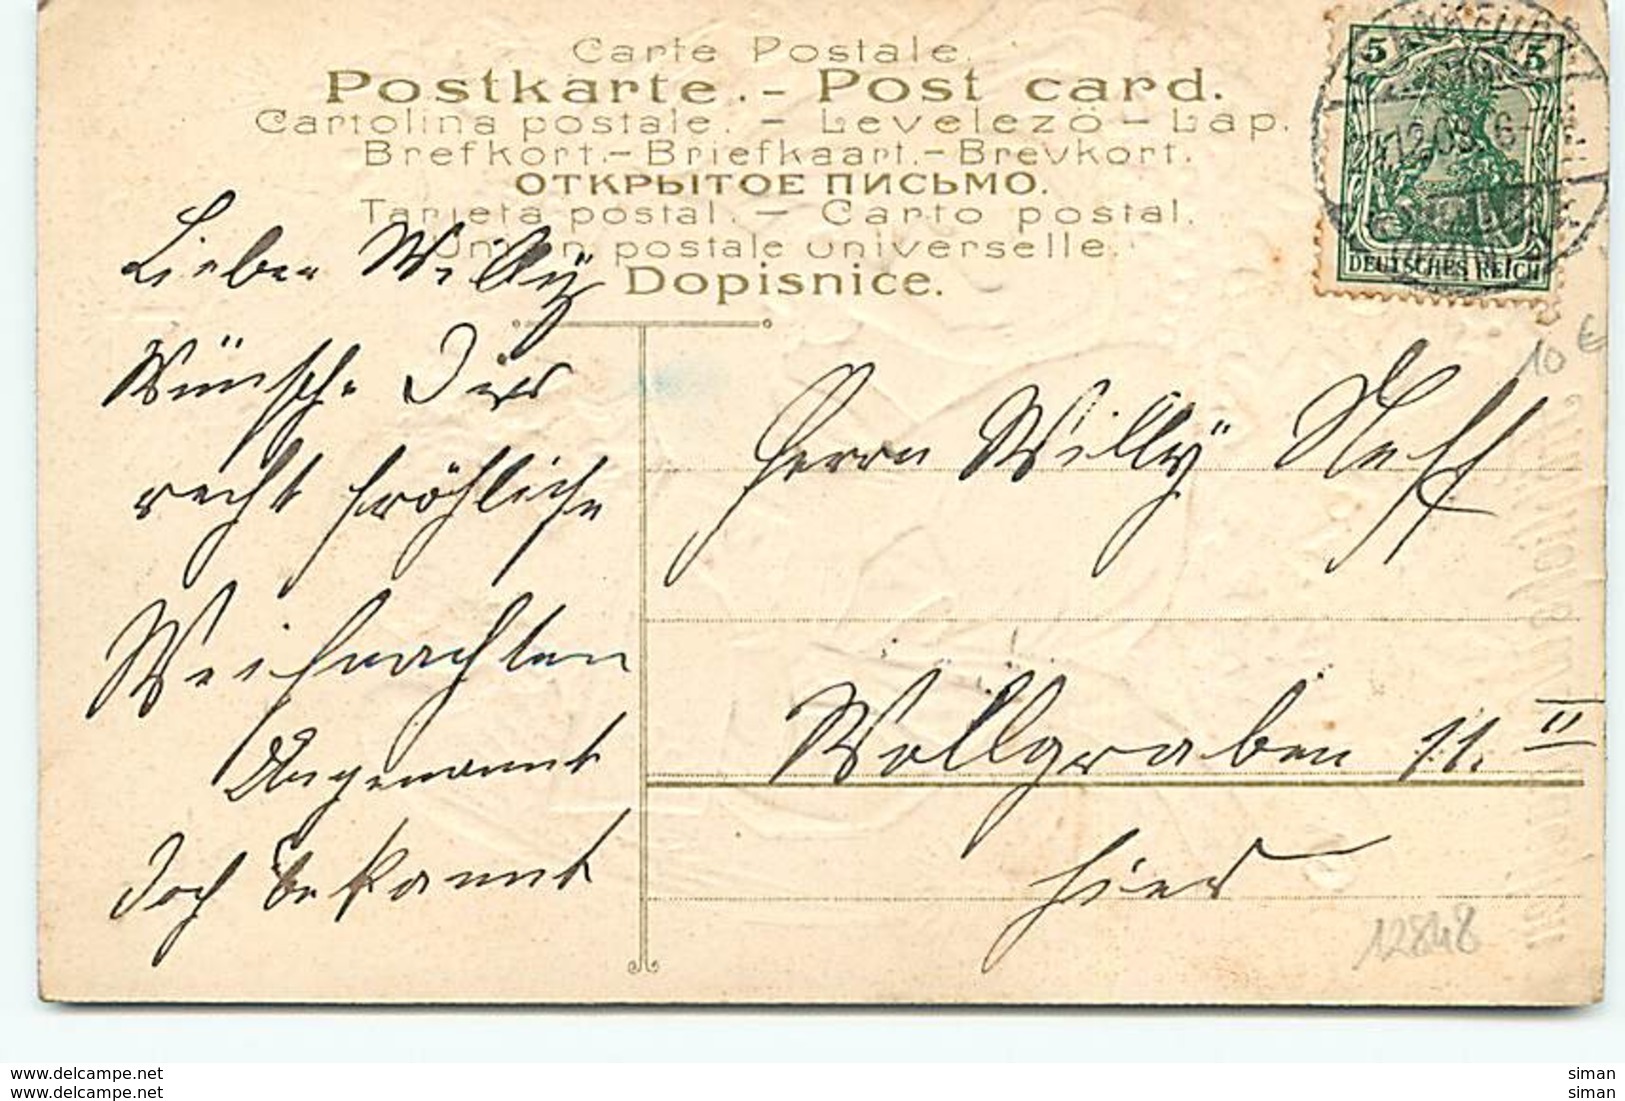 Carte Postale.
Postkarte. - Post card.
Cartolina postale. - Levelezö - Lap.
Brefkort. - Briefkaart. - Brevkort.
ОТКРЫТОЕ ПИСЬМО.
Tarjeta postal. - Carto postal.
Union postale universelle.
Dopisnice.
5 5
DEUTSCHES REICH
10 €
Lieber Willÿ
Wünsche Dir
recht fröhliche
Weihnachten
Ungenannt
doch bekannt
Herrn Willÿ Neff
Wollgraben 11. II
hier
12848
www.delcampe.net
siman
www.delcampe.net
siman